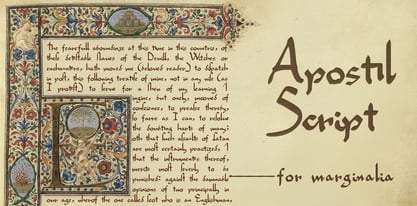 the fearefull aboundinge at this time in this countrie, of
these detestable slaves of the Devill, the Witches or
enchaunters, hath moved me (beloved reader,) to dispatch
in post, this following treatise of mine, not in any wise (as
I protest) to serve for a shew of my learning &
ingine, but onely, mooved of
conscience, to preasse thereby,
so farre as I can, to resolve
the doubting harts of many;
both that such assaults of Satan
are most certainly practized, &
that the instruments thereof,
merits most severly to be
punished: against the damnable
opinions of two principally in
our age, wherof the one called Scot who is an Englishman,
Apostil
Script
for marginalia